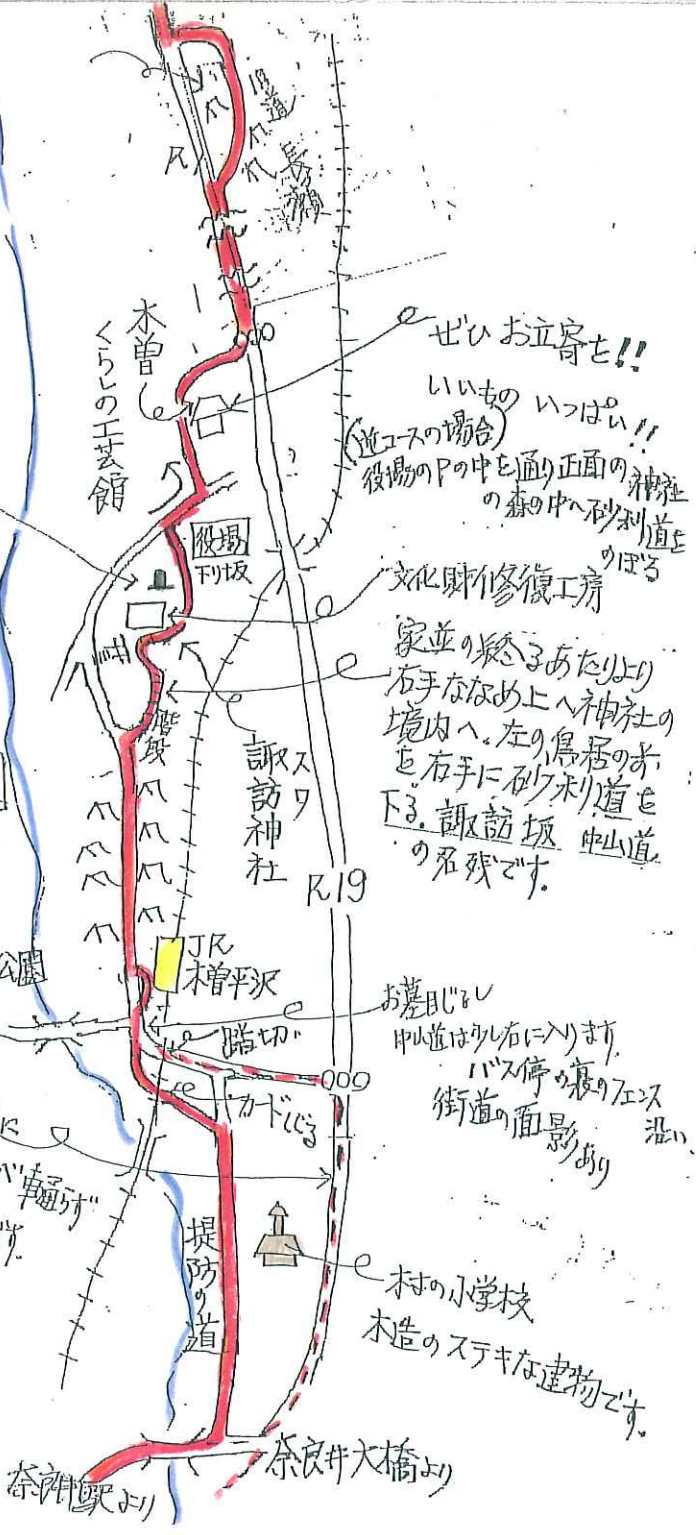 旧道
長瀬
木曽
くらしの工芸館
ぜひ お立寄を!!
いいもの いっぱい!!
(逆コースの場合)
役場のPの中を通り正面の神社
の森の中へ砂利道を
のぼる
役場
下り坂
文化財修復工房
家並の終るあたりより
右手ななめ上へ神社の
境内へ。左の鳥居の
を右手に砂利道を
下る。諏訪坂 中山道
の名残です。
階段
スワ
諏訪神社
R19
JR
木曽平沢
公園
お墓目じるし
中山道は少し右に入ります。
バス停の裏のフェンス
沿い、
街道の面影あり
踏切
ガードくぐる
車通らず
です。
堤防の道
村の小学校
木造のステキな建物です。
奈良井大橋より
奈良井駅より